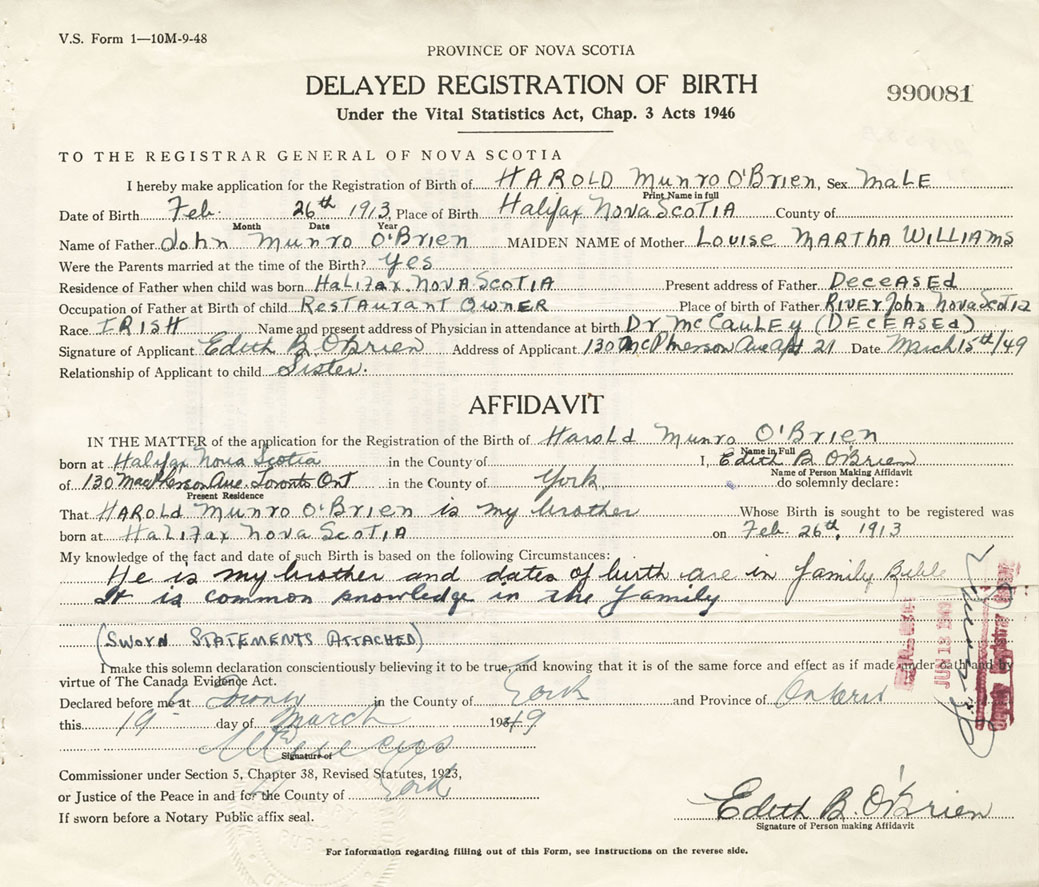 V.S. Form 1—10M-9-48
PROVINCE OF NOVA SCOTIA
DELAYED REGISTRATION OF BIRTH
990081
Under the Vital Statistics Act, Chap. 3 Acts 1946
TO THE REGISTRAR GENERAL OF NOVA SCOTIA
I hereby make application for the Registration of Birth of HAROLD Munro O'Brien, Sex MaLE
Print Name in full
Date of Birth Feb. 26th 1913, Place of Birth Halifax Nova ScoTIA County of
Month Date Year
Name of Father John Munro O'Brien MAIDEN NAME of Mother Louise MARTHA WILLIAMS
Were the Parents married at the time of the Birth? Yes
Residence of Father when child was born HaLifax Nova Scotia Present address of Father DeceaseD
Occupation of Father at Birth of child RestauranT Owner Place of birth of Father RIVER John Nova Scotia
Race IRISH Name and present address of Physician in attendance at birth Dr McCauLey (DECEASED)
Signature of Applicant Edith B. O'Brien Address of Applicant 130 McPherson Ave Apt 21 Date March 15th/49
Relationship of Applicant to child Sister.
AFFIDAVIT
IN THE MATTER of the application for the Registration of the Birth of HaroLd Munro O'Brien
Name in Full
born at Halifax Nova Scotia in the County of I, Edith B O'Brien
Name of Person Making Affidavit
of 130 MacPherson Ave. Toronto Ont in the County of York do solemnly declare:
Present Residence
That HAROLD Munro O'Brien is my brother Whose Birth is sought to be registered was
born at HaLifax Nova ScoTIA on Feb. 26th, 1913
My knowledge of the fact and date of such Birth is based on the following Circumstances:
He is my brother and dates of birth are in family Bible
It is common knowledge in the family
(Sworn STaTemenTs ATTacheD)
I make this solemn declaration conscientiously believing it to be true, and knowing that it is of the same force and effect as if made under oath and by
virtue of The Canada Evidence Act.
Declared before me at Toronto in the County of York and Province of Ontario
this 19 day of March 1949
Signature of
Commissioner under Section 5, Chapter 38, Revised Statutes, 1923,
or Justice of the Peace in and for the County of York
If sworn before a Notary Public affix seal.
Edith B. O'Brien
Signature of Person making Affidavit
For Information regarding filling out of this Form, see instructions on the reverse side.